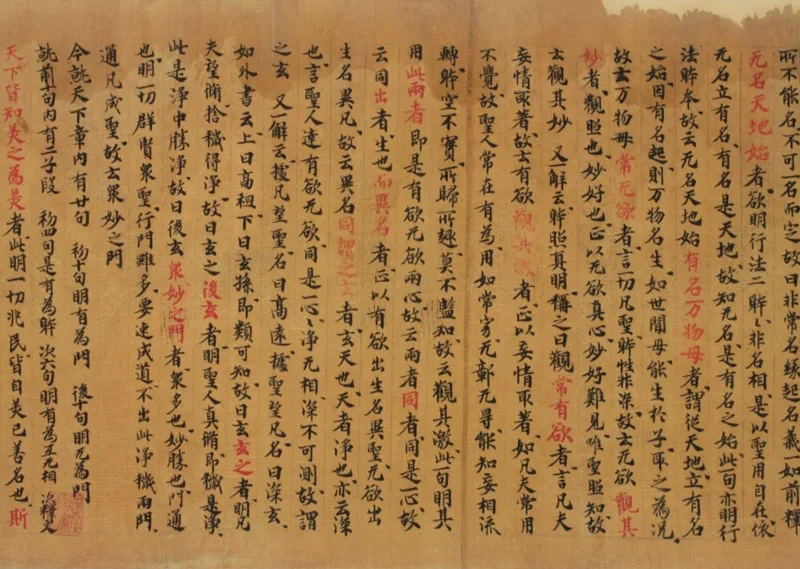 所不能名不可一名而定故曰非常名緣起名義一如前釋
无名天地始者欲明行法二躰〻非名相是以聖用自在依
无名立有名有名是天地故知无名是有名之始此句亦明行
法躰本故云无名天地始有名万物母者謂從天地立有名
之始因有名起則万物名生如世閒母能生於子取之為况
故云万物母常无欲者言一切凡聖躰性非染故云无欲觀其
妙者觀照也妙好也正以无欲真心妙好難見唯聖照知故
云觀其妙又一解云躰照真明稱之曰觀常有欲者言凡夫
妄情取著故云有欲觀其徼者正以妄情取著如凡夫常用
不覺故聖人常在有為用如常穷无彰无尋能知妄相流
轉躰空不實所歸所趣莫不監知故云觀其激此一句明其
用此兩者即是有欲无欲兩心故云兩者同者同是一心故
云同出者生也而異名者正以有欲出生名異聖无欲出
生名異凡故云異名同謂之玄者玄天也天者淨也亦云深
也言聖人達有欲无欲同是一心〻淨无相深不可測故謂
之玄又一解云據凡望聖名曰高遠據聖望凡名曰深玄
如外書云上曰高祖下曰玄孫即類可知故曰玄玄之者明凡
夫望脩捨穢得淨故曰玄之後玄者明聖人真脩即穢是淨
此是淨中勝淨故曰後玄眾妙之門者眾多也妙勝也門通
也明一切群賢眾聖行門雖多要速成道不出此淨穢兩門
通凡成聖故云眾妙之門
今就天下章内有廿句初十句明有為門後十句明无為門
就前句内有二子段初四句是有為躰次六句明有為五元相次釋文
天下皆知美之為美者此明一切兆民皆自美己善名也斯